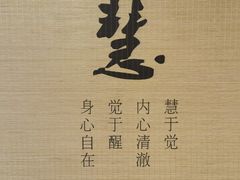 慧
慧于觉
内心清澈
觉于醒
身心自在